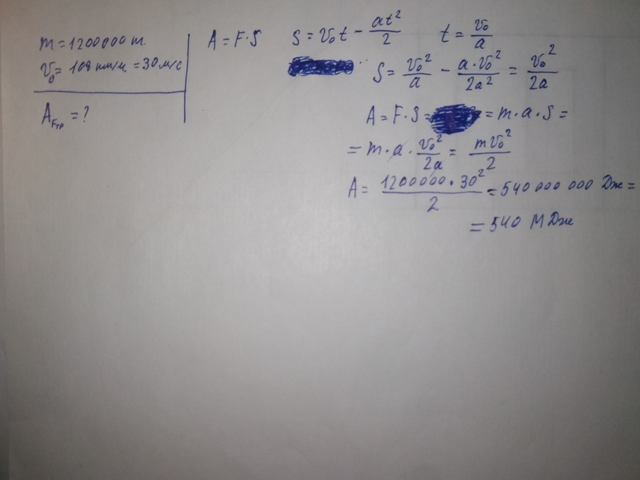 m = 1200000 т.
v₀ = 108 км/ч. = 30 м/с
A_Fтр = ?
A = F · S
S = v₀t - at²/2
t = v₀/a
S = v₀²/a - a · v₀²/2a² = v₀²/2a
A = F · S = = m · a · S =
= m · a · v₀²/2a = mv₀²/2
A = 1200000 · 30²/2 = 540 000 000 Дж =
= 540 МДж